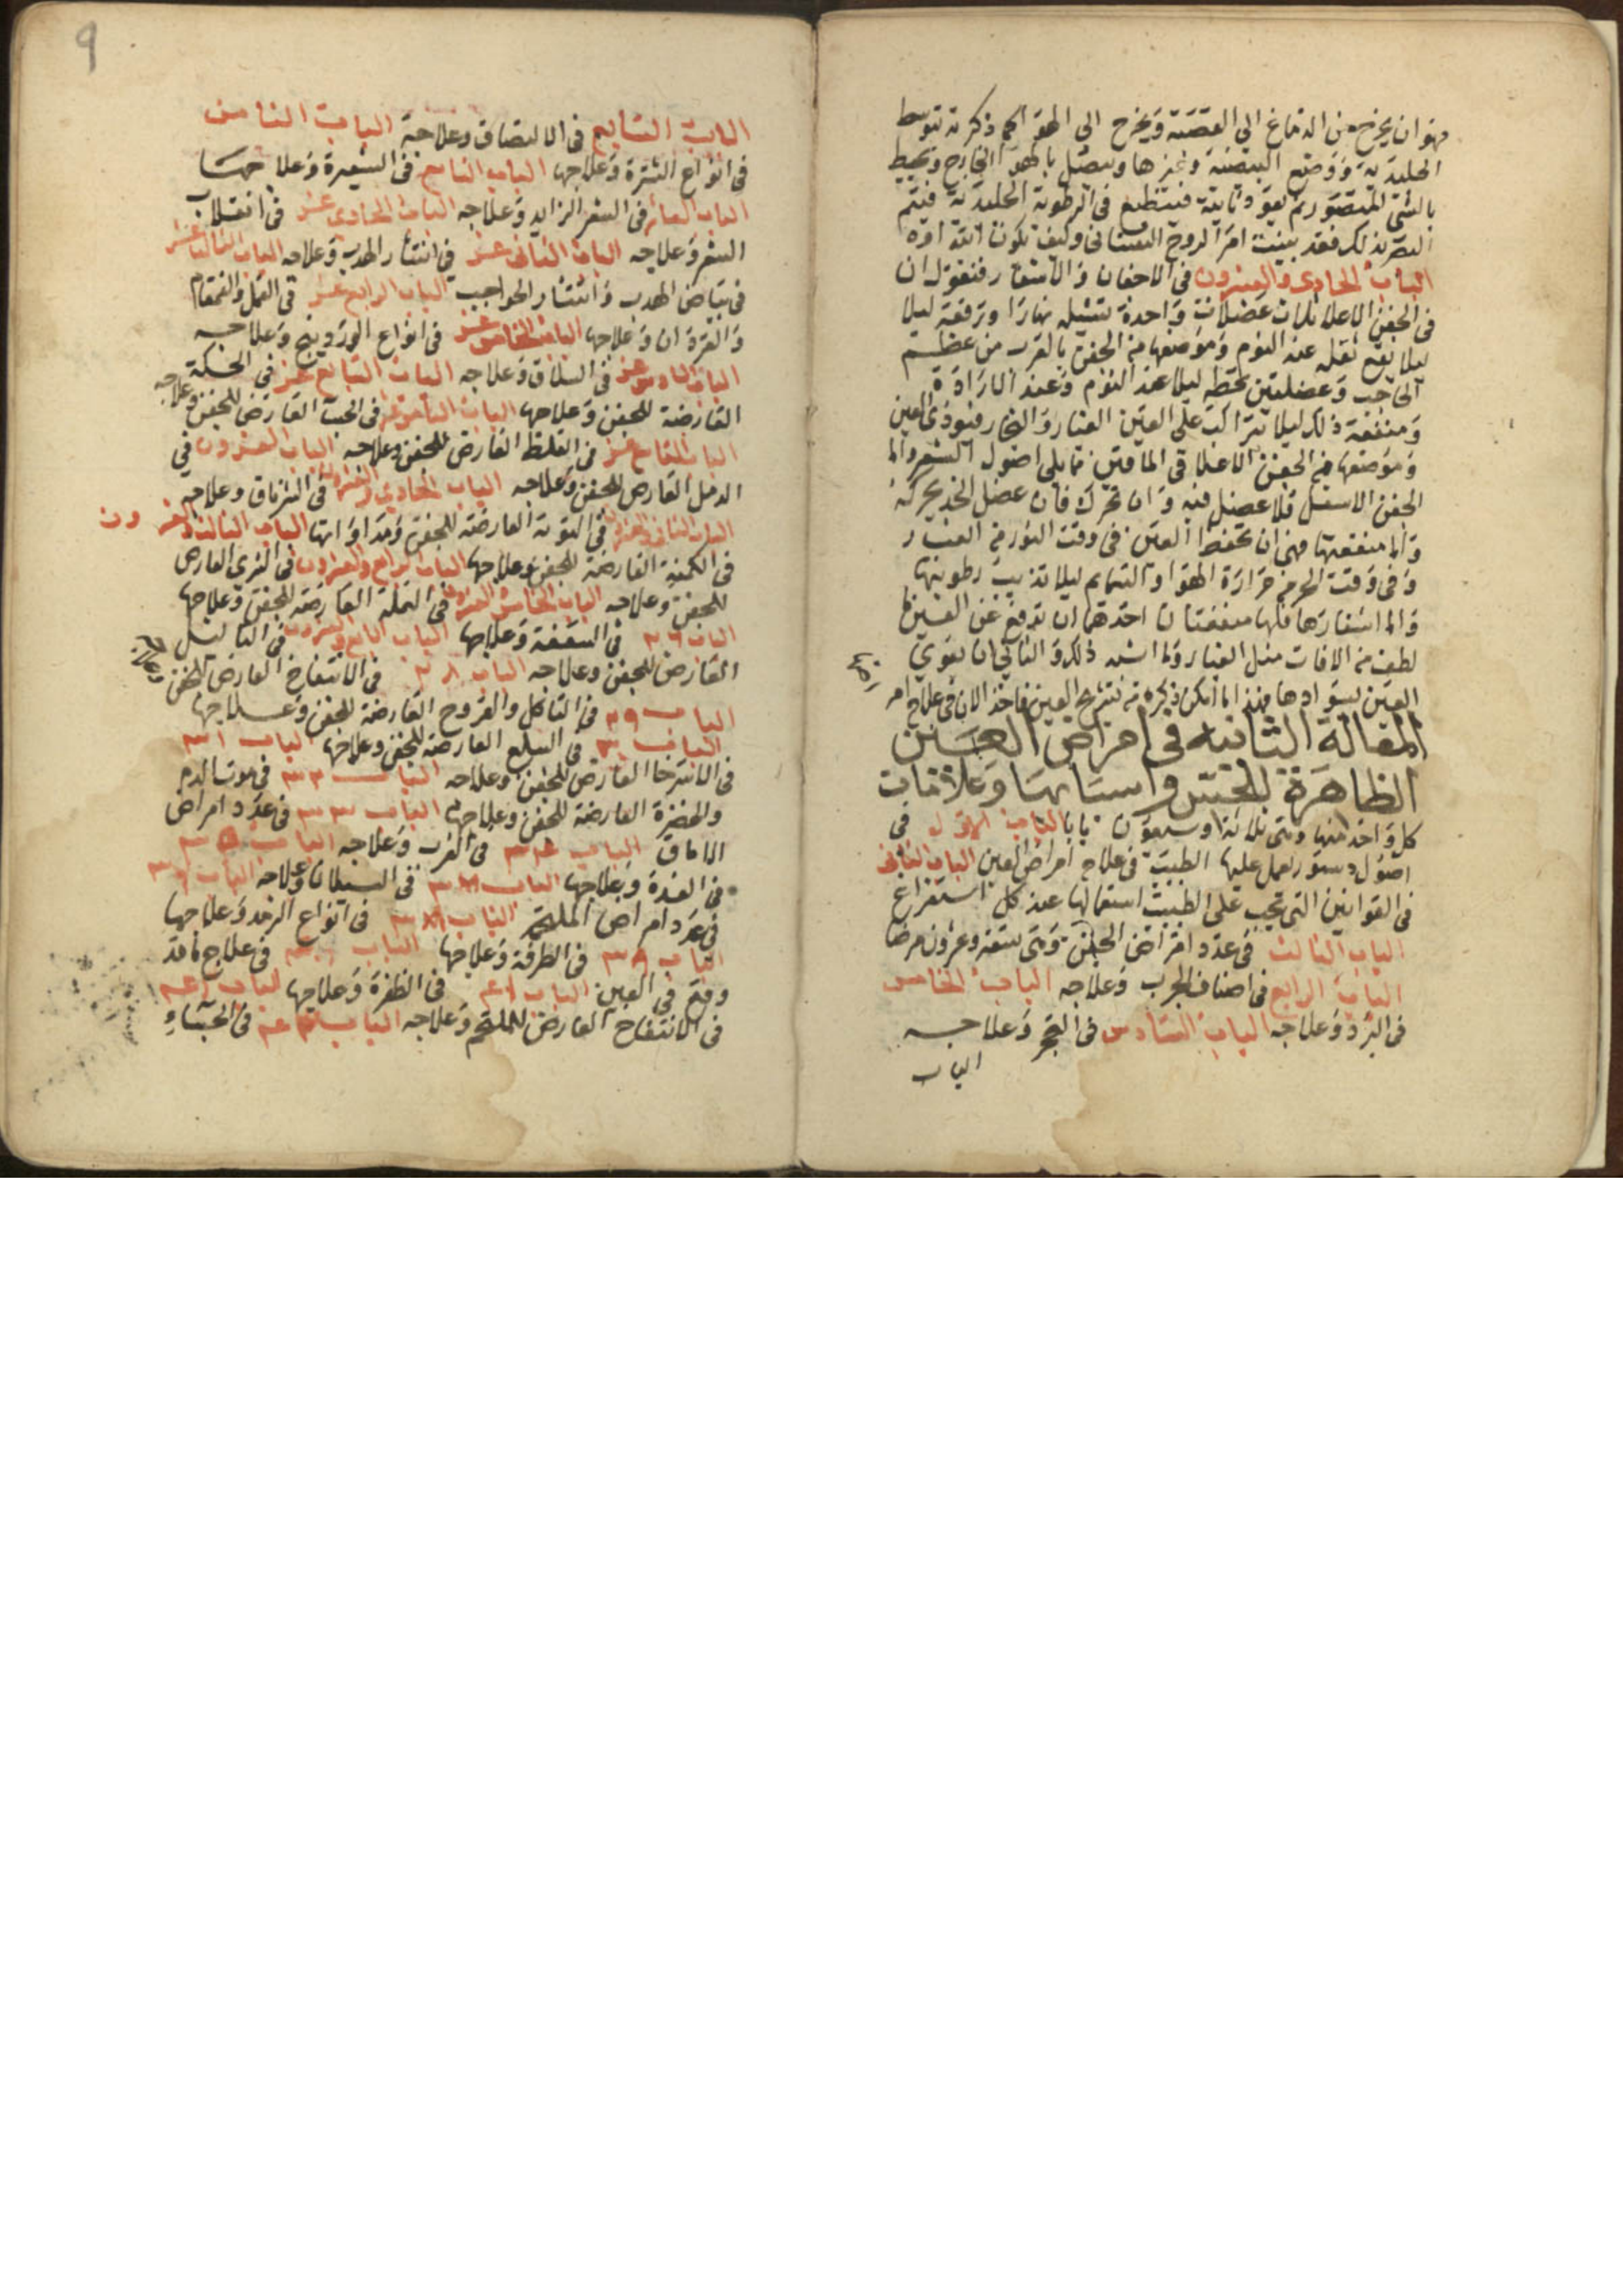 فهو ان يخرج من الدماغ الي العصبة ويخرج الي الهوا كما ذكر ثم بتوسط
الجليدية ووضع البيضية وغيرها ويتصل بالهوا الخارج ويحيط
بالشي المتصور ثم يعود ثانية فينطبع في الرطوبة الجليدية فيتم
البصر بذلك فقد بينت امر الروح النفساني وكيف تكون
الباب الحادي والعشرون في الاجفان والاشفار فنقول ان
في الجفن الاعلا ثلاث عضلات واحدة تشيله نهارا وترفعه ليلا
ليلا يقع ثقله عند النوم وموضعها من الجفن بالقرب من عظم
الحاجب وعضلتين تحطه ليلا عند النوم وعند الارادة
ومنفعة ذلك ليلا يتراكب على العين الغبار والبخار فيوذي العين
وموضعها في الجفن الاعلا في الماقين مما يلي اصول الشعر واما
الجفن الاسفل فلا عضل فيه وان تحرك فان عضل الخد يحركه
واما منفعتها فهي ان تحفظ العين في وقت النور من الغبار
وفي وقت الحر من حرارة الهوا والسمايم ليلا تذيب رطوبتها
واما اشفارها فلها منفعتان احدهما ان تدفع عن العين ما
لطف من الافات مثل الغبار وما اشبه ذلك والثاني ان تقوي
العين بسوادها فهذا ما امكن ذكره من تشريح العين فناخذ الان في علاج امراضها
المقالة الثانية في امراض العين
الظاهرة للحس واسبابها وعلامات
كل واحد منها وهي ثلاثة وسبعون بابا الباب الاول في
اصول دستور يعمل عليها الطبيب في علاج امراض العين الباب الثاني
في القوانين التي تجب على الطبيب استعمالها عند كل استفراغ
الباب الثالث في عدد امراض الجفن وهي تسعة وعشرون مرضا
الباب الرابع في اصناف الجرب وعلاجه الباب الخامس
في البرد وعلاجه الباب السادس في التحجر وعلاجه
الباب
9
الباب السابع في الالتصاق وعلاجه الباب الثامن
في انواع الشترة وعلاجها الباب التاسع في الشعيرة وعلاجها
الباب العاشر في الشعر الزايد وعلاجه الباب الحادي عشر في انقلاب
الشعر وعلاجه الباب الثاني عشر في انتثار الهدب وعلاجه الباب الثالث عشر
في بياض الهدب وانتثار الحواجب الباب الرابع عشر في القمل والقمقام
والقردان وعلاجها الباب الخامس عشر في انواع الوردينج وعلاجه
الباب السادس عشر في السلاق وعلاجه الباب السابع عشر في الحكة
العارضة للجفن وعلاجها الباب الثامن عشر في الجسا العارض للجفن وعلاجه
الباب التاسع عشر في الغلظ العارض للجفن وعلاجه الباب العشرون في
الدمل العارض للجفن وعلاجه الباب الحادي والعشرون في الشرناق وعلاجه
الباب الثاني والعشرون في التوتة العارضة للجفن ومداواتها الباب الثالث والعشرون
في الكمنة العارضة للجفن وعلاجها الباب الرابع والعشرون في الشري العارض
للجفن وعلاجه الباب الخامس والعشرون في النملة العارضة للجفن وعلاجها
الباب ٢٦ في السعفة وعلاجها الباب السابع والعشرون في الثاليل
العارض للجفن وعلاجه الباب ٢٨ في الانتفاخ العارض للجفن وعلاجه
الباب ٢٩ في التاكل والقروح العارضة للجفن وعلاجها
الباب ٣٠ في السلع العارضة للجفن وعلاجها الباب ٣١
في الاسترخا العارض للجفن وعلاجه الباب ٣٢ في موت الدم
والخضرة العارضة للجفن وعلاجها الباب ٣٣ في عدد امراض
الاماق الباب ٣٤ في الغرب وعلاجه الباب ٣٥
في الغدة وعلاجها الباب ٣٦ في السيلان وعلاجه الباب
في عدد امراض الملتحم الباب ٣٨ في انواع الرمد وعلاجها
الباب ٣٩ في الطرفة وعلاجها الباب ٤٠ في علاج ما قد
وقع في العين الباب ٤١ في الظفرة وعلاجها الباب ٤٢
في الانتفاخ العارض للملتحم وعلاجه الباب ٤٣ في الجساء